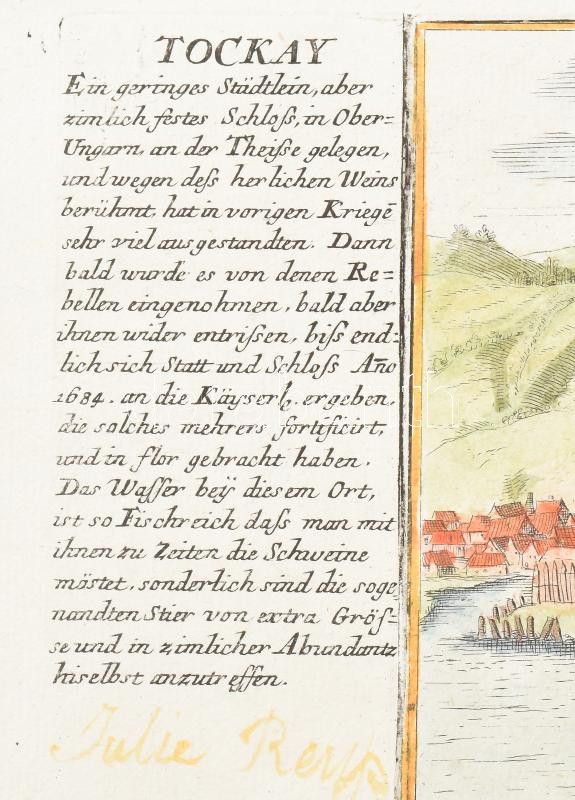 TOCKAY
Ein geringes Städtlein, aber
zimlich festes Schloß, in Ober=
Ungarn, an der Theiße gelegen,
und wegen deß herlichen Weins
berühmt, hat in vorigen Kriegē
sehr viel ausgestandten. Dann
bald wurde es von denen Re=
bellen eingenohmen, bald aber
ihnen wider entrißen, biß end=
lich sich Statt und Schloß Año
1684. an die Käyserl. ergeben,
die solches mehrers fortificirt,
und in flor gebracht haben.
Das Waßer beÿ diesem Ort,
ist so Fischreich daß man mit
ihnen zu Zeiten die Schweine
möstet, sonderlich sind die soge
nandten Stier von extra Gröſ=
se und in zimlicher Abundantz
hiselbst anzutreffen.
Julie